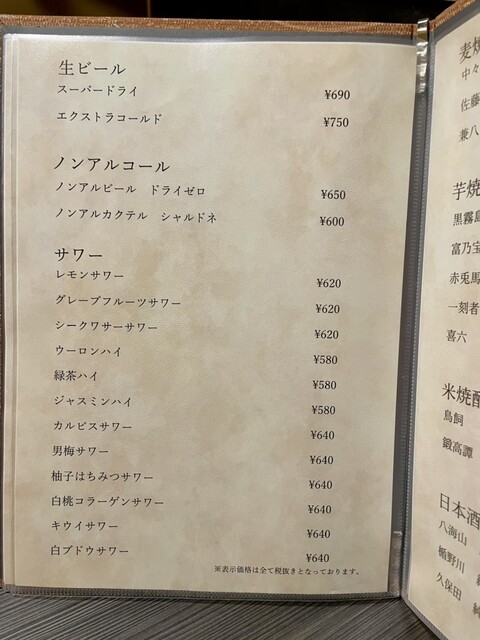 生ビール
スーパードライ ¥690
エクストラコールド ¥750
ノンアルコール
ノンアルビール ドライゼロ ¥650
ノンアルカクテル シャルドネ ¥600
サワー
レモンサワー ¥620
グレープフルーツサワー ¥620
シークワサーサワー ¥620
ウーロンハイ ¥580
緑茶ハイ ¥580
ジャスミンハイ ¥580
カルピスサワー ¥640
男梅サワー ¥640
柚子はちみつサワー ¥640
白桃コラーゲンサワー ¥640
キウイサワー ¥640
白ブドウサワー ¥640
※表示価格は全て税抜きとなっております。
麦焼
中々
佐藤
兼八
芋焼
黒霧島
富乃宝
赤兎馬
一刻者
喜六
米焼酎
鳥飼
鍛高譚
日本酒
八海山
楯野川
久保田 純